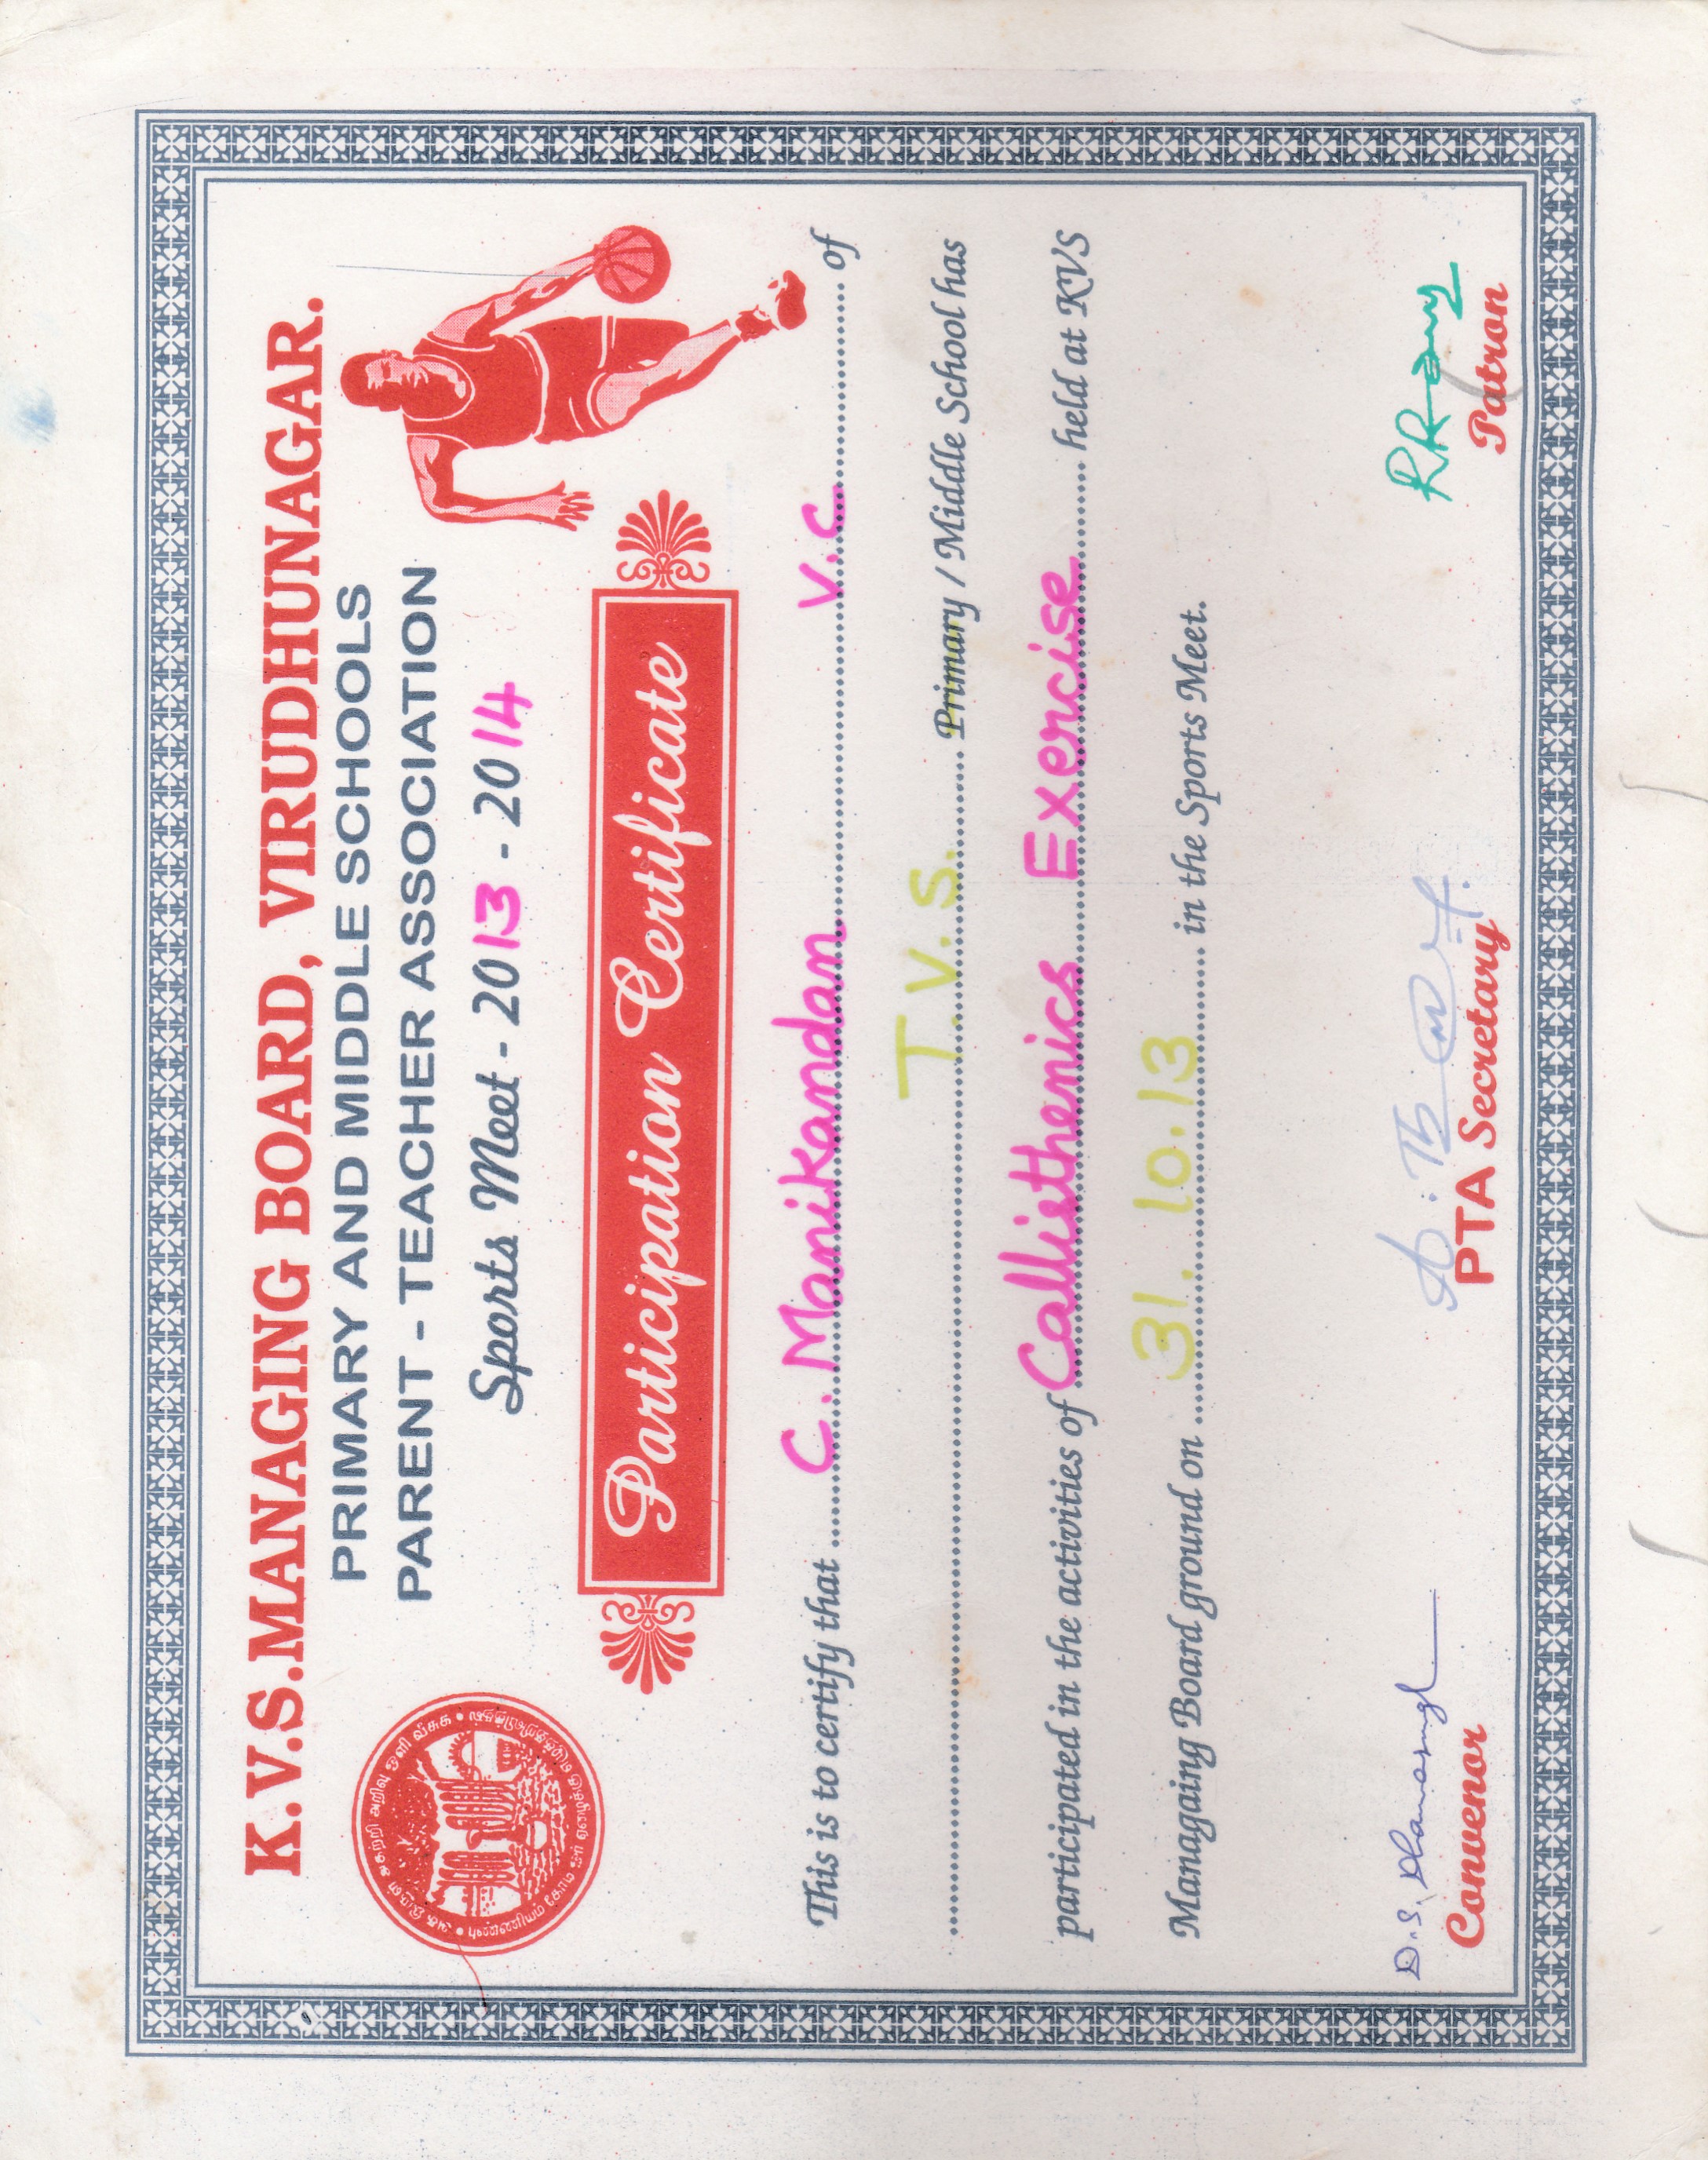 K.V.S.MANAGING BOARD, VIRUDHUNAGAR.
PRIMARY AND MIDDLE SCHOOLS
PARENT - TEACHER ASSOCIATION
Sports Meet - 2013 - 2014
Participation Certificate
This is to certify that ........ C. Manikandan V.C ........ of
........ T.V.S. ........ Primary / Middle School has
participated in the activities of Callisthenics Exercise ........ held at KVS
Managaing Board ground on ........ 31.10.13 ........ in the Sports Meet.
Convenor PTA Secretary Patron